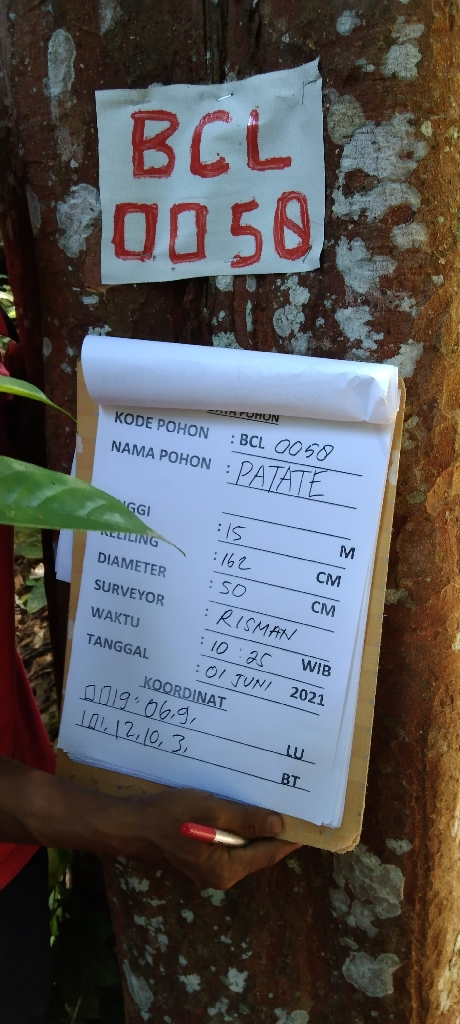 BCL
0050
DATA POHON
KODE POHON : BCL 0050
NAMA POHON : PATATE
NGGI : 15 M
KELILING : 162 CM
DIAMETER : 50 CM
SURVEYOR : RISMAN
WAKTU : 10 : 25 WIB
TANGGAL : 01 JUNI 2021
KOORDINAT
0019. 06.9. LU
101. 12.10. 3. BT